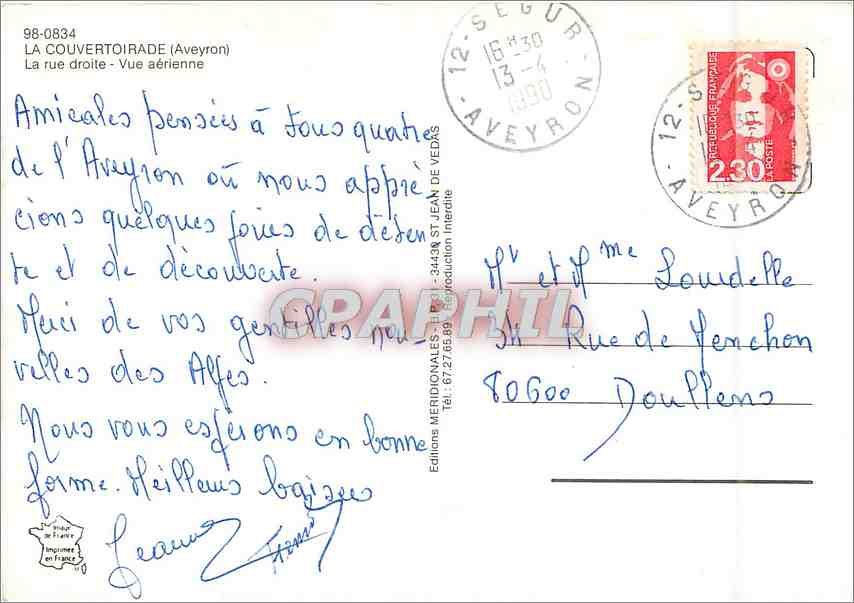 98-0834
LA COUVERTOIRADE (Aveyron)
La rue droite - Vue aérienne
Amicales pensées à tous quatre
de l'Aveyron où nous appré-
cions quelques jours de déten
te et de découverte.
Merci de vos gentilles nou-
velles des Alpes.
Nous vous espérons en bonne
forme. Meilleurs baisers
Jeanne
Image
de France
Imprimée
en France
Editions MERIDIONALES - B.P. 31 - 34430 ST JEAN DE VEDAS
Tél.: 67.27.65.89 - Reproduction Interdite
CPAPHIL
12 - SEGUR
16 H 30
13 - 4
1990
AVEYRON
12 - S
AVEYRON
REPUBLIQUE FRANÇAISE
2,30
LA POSTE
Mr et Mme Lourdelle
34 Rue de Menchon
80600 Doullens